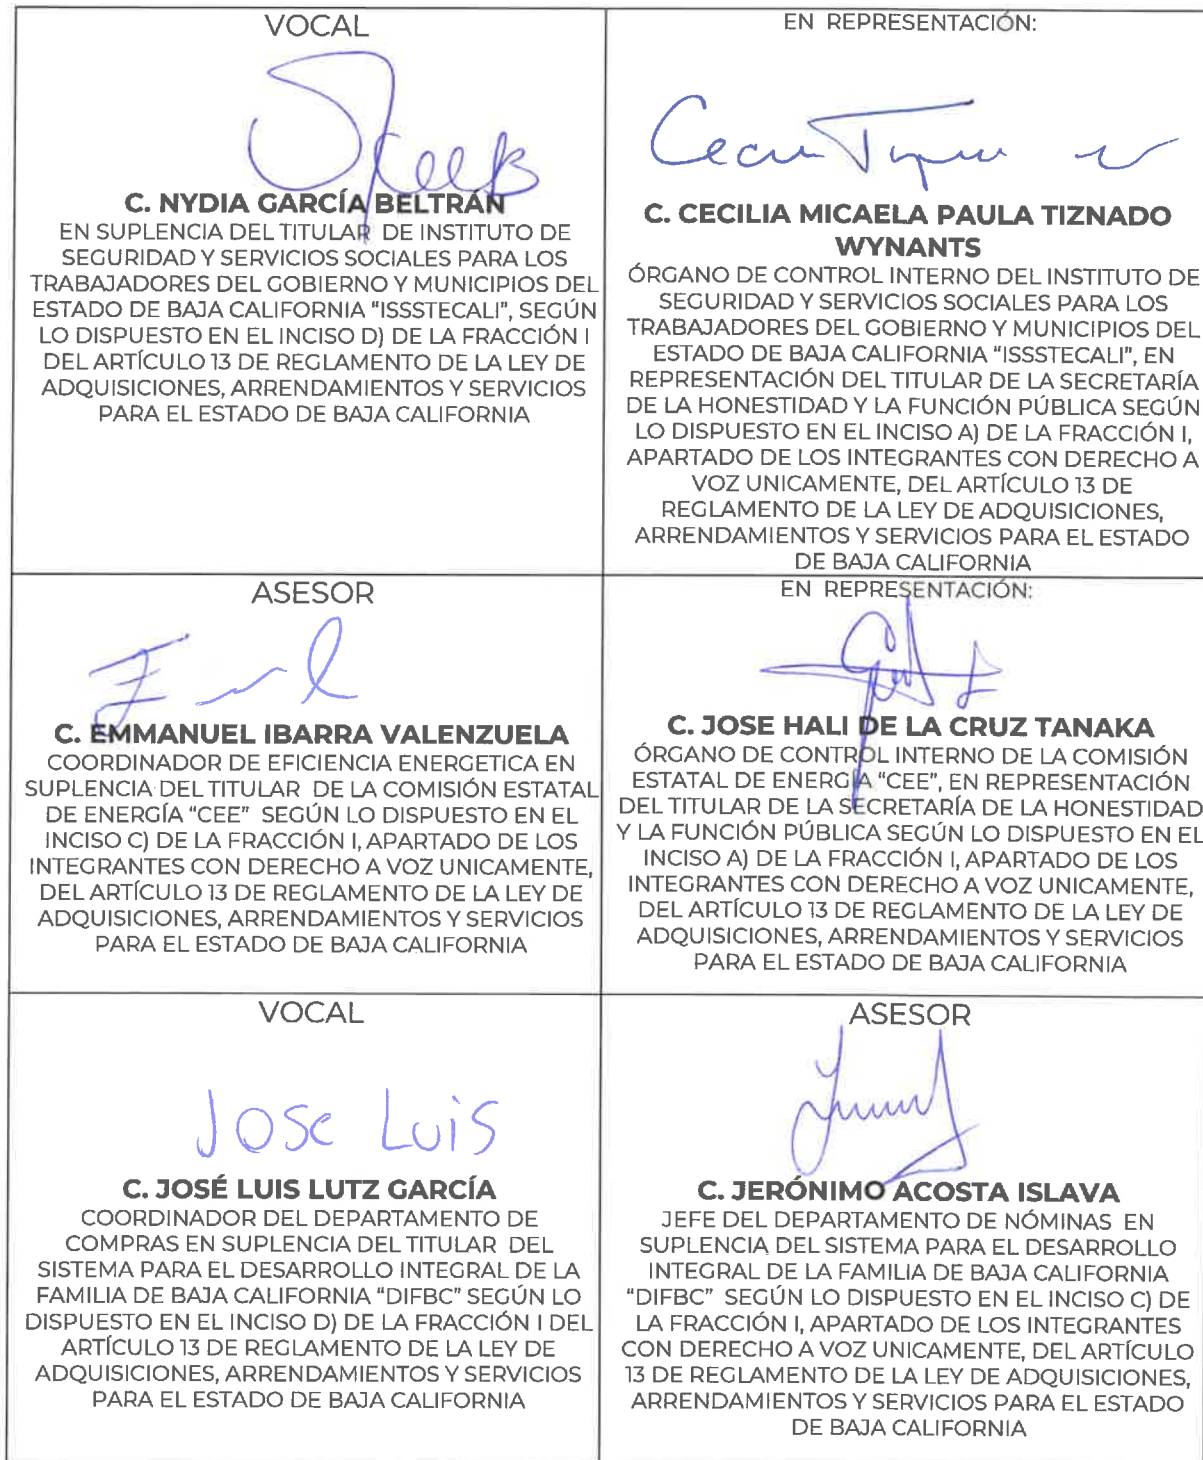 VOCAL
C. NYDIA GARCÍA BELTRÁN
EN SUPLENCIA DEL TITULAR DE INSTITUTO DE
SEGURIDAD Y SERVICIOS SOCIALES PARA LOS
TRABAJADORES DEL GOBIERNO Y MUNICIPIOS DEL
ESTADO DE BAJA CALIFORNIA "ISSSTECALI", SEGÚN
LO DISPUESTO EN EL INCISO D) DE LA FRACCIÓN I
DEL ARTÍCULO 13 DE REGLAMENTO DE LA LEY DE
ADQUISICIONES, ARRENDAMIENTOS Y SERVICIOS
PARA EL ESTADO DE BAJA CALIFORNIA
EN REPRESENTACIÓN:
C. CECILIA MICAELA PAULA TIZNADO
WYNANTS
ÓRGANO DE CONTROL INTERNO DEL INSTITUTO DE
SEGURIDAD Y SERVICIOS SOCIALES PARA LOS
TRABAJADORES DEL GOBIERNO Y MUNICIPIOS DEL
ESTADO DE BAJA CALIFORNIA "ISSSTECALI", EN
REPRESENTACIÓN DEL TITULAR DE LA SECRETARÍA
DE LA HONESTIDAD Y LA FUNCIÓN PÚBLICA SEGÚN
LO DISPUESTO EN EL INCISO A) DE LA FRACCIÓN I,
APARTADO DE LOS INTEGRANTES CON DERECHO A
VOZ UNICAMENTE, DEL ARTÍCULO 13 DE
REGLAMENTO DE LA LEY DE ADQUISICIONES,
ARRENDAMIENTOS Y SERVICIOS PARA EL ESTADO
DE BAJA CALIFORNIA
ASESOR
C. EMMANUEL IBARRA VALENZUELA
COORDINADOR DE EFICIENCIA ENERGETICA EN
SUPLENCIA DEL TITULAR DE LA COMISIÓN ESTATAL
DE ENERGÍA "CEE" SEGÚN LO DISPUESTO EN EL
INCISO C) DE LA FRACCIÓN I, APARTADO DE LOS
INTEGRANTES CON DERECHO A VOZ UNICAMENTE,
DEL ARTÍCULO 13 DE REGLAMENTO DE LA LEY DE
ADQUISICIONES, ARRENDAMIENTOS Y SERVICIOS
PARA EL ESTADO DE BAJA CALIFORNIA
EN REPRESENTACIÓN:
C. JOSE HALI DE LA CRUZ TANAKA
ÓRGANO DE CONTROL INTERNO DE LA COMISIÓN
ESTATAL DE ENERGÍA "CEE", EN REPRESENTACIÓN
DEL TITULAR DE LA SECRETARÍA DE LA HONESTIDAD
Y LA FUNCIÓN PÚBLICA SEGÚN LO DISPUESTO EN EL
INCISO A) DE LA FRACCIÓN I, APARTADO DE LOS
INTEGRANTES CON DERECHO A VOZ UNICAMENTE,
DEL ARTÍCULO 13 DE REGLAMENTO DE LA LEY DE
ADQUISICIONES, ARRENDAMIENTOS Y SERVICIOS
PARA EL ESTADO DE BAJA CALIFORNIA
VOCAL
Jose Luis
C. JOSÉ LUIS LUTZ GARCÍA
COORDINADOR DEL DEPARTAMENTO DE
COMPRAS EN SUPLENCIA DEL TITULAR DEL
SISTEMA PARA EL DESARROLLO INTEGRAL DE LA
FAMILIA DE BAJA CALIFORNIA "DIFBC" SEGÚN LO
DISPUESTO EN EL INCISO D) DE LA FRACCIÓN I DEL
ARTÍCULO 13 DE REGLAMENTO DE LA LEY DE
ADQUISICIONES, ARRENDAMIENTOS Y SERVICIOS
PARA EL ESTADO DE BAJA CALIFORNIA
ASESOR
C. JERÓNIMO ACOSTA ISLAVA
JEFE DEL DEPARTAMENTO DE NÓMINAS EN
SUPLENCIA DEL SISTEMA PARA EL DESARROLLO
INTEGRAL DE LA FAMILIA DE BAJA CALIFORNIA
"DIFBC" SEGÚN LO DISPUESTO EN EL INCISO C) DE
LA FRACCIÓN I, APARTADO DE LOS INTEGRANTES
CON DERECHO A VOZ UNICAMENTE, DEL ARTÍCULO
13 DE REGLAMENTO DE LA LEY DE ADQUISICIONES,
ARRENDAMIENTOS Y SERVICIOS PARA EL ESTADO
DE BAJA CALIFORNIA